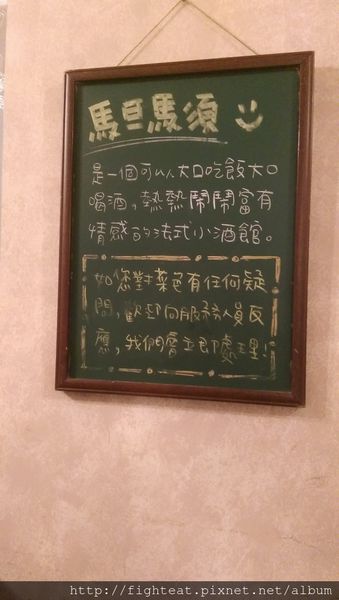 馬旦馬須
是一個可以大口吃飯大口
喝酒,熱熱鬧鬧富有
情感的法式小酒館。
如您對菜色有任何疑
問,歡迎向服務人員反
應,我們會立即處理!
http://fighteat.pixnet.net/album